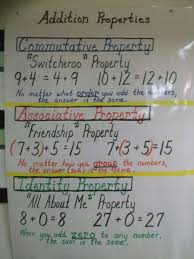 Addition Properties
Commutative Property
"Switcheroo" Property
9+4=4+9 10+12=12+10
No matter what order you add the numbers,
the answer is the same.
Associative Property
"Friendship" Property
(7+3)+5=15 7+(3+5)=15
No matter how you group the numbers,
the answer is the same.
Identity Property
"All About Me" Property
8+0=8 27+0=27
When you add zero to any number,
the sum is the same.